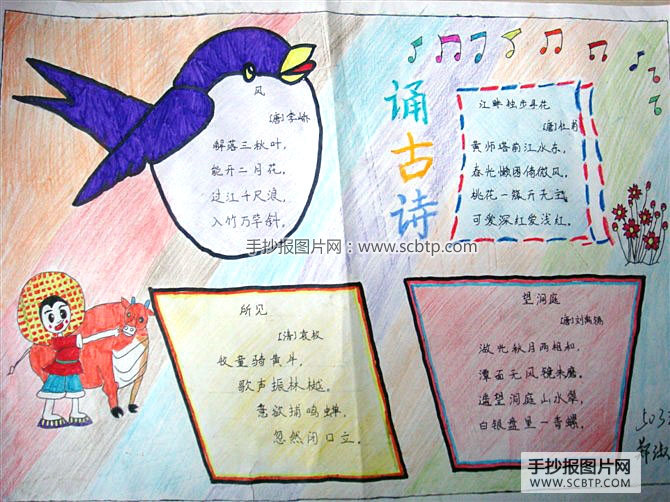 诵古诗
风
[唐]李峤
解落三秋叶，
能开二月花。
过江千尺浪，
入竹万竿斜。
江畔独步寻花
[唐]杜甫
黄师塔前江水东，
春光懒困倚微风。
桃花一簇开无主，
可爱深红爱浅红。
手抄报图片网：www.scbtp.com
所见
[清]袁枚
牧童骑黄牛，
歌声振林樾。
意欲捕鸣蝉，
忽然闭口立。
望洞庭
[唐]刘禹锡
湖光秋月两相和，
潭面无风镜未磨。
遥望洞庭山水翠，
白银盘里一青螺。
503
手抄报图片网
WWW.SCBTP.COM